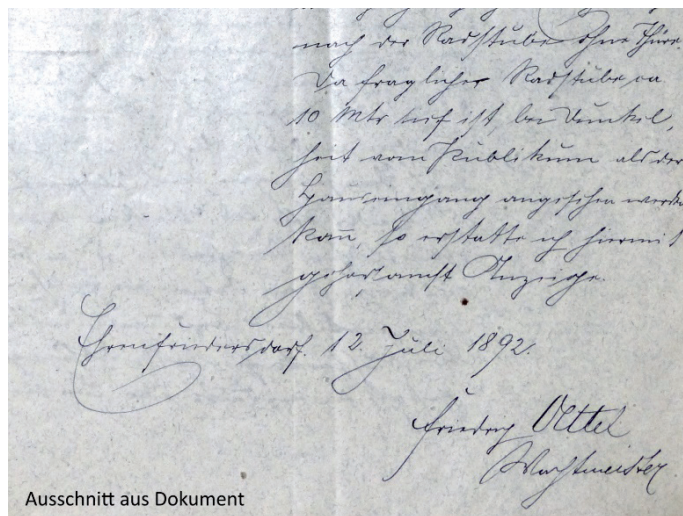 nach der Radstube ohne Thüre.
Da fraglicher Radstube ca
10 Mtr tief ist, bei Dunkel,
heit vom Publikum als der
Hauseingang angesehen werden
kann, so erstatte ich hiermit
gehorsamst Anzeige.
Ehrenfriedersdorf. 12. Juli 1892.
Friedrich Oettel
Wachtmeister
Ausschnitt aus Dokument